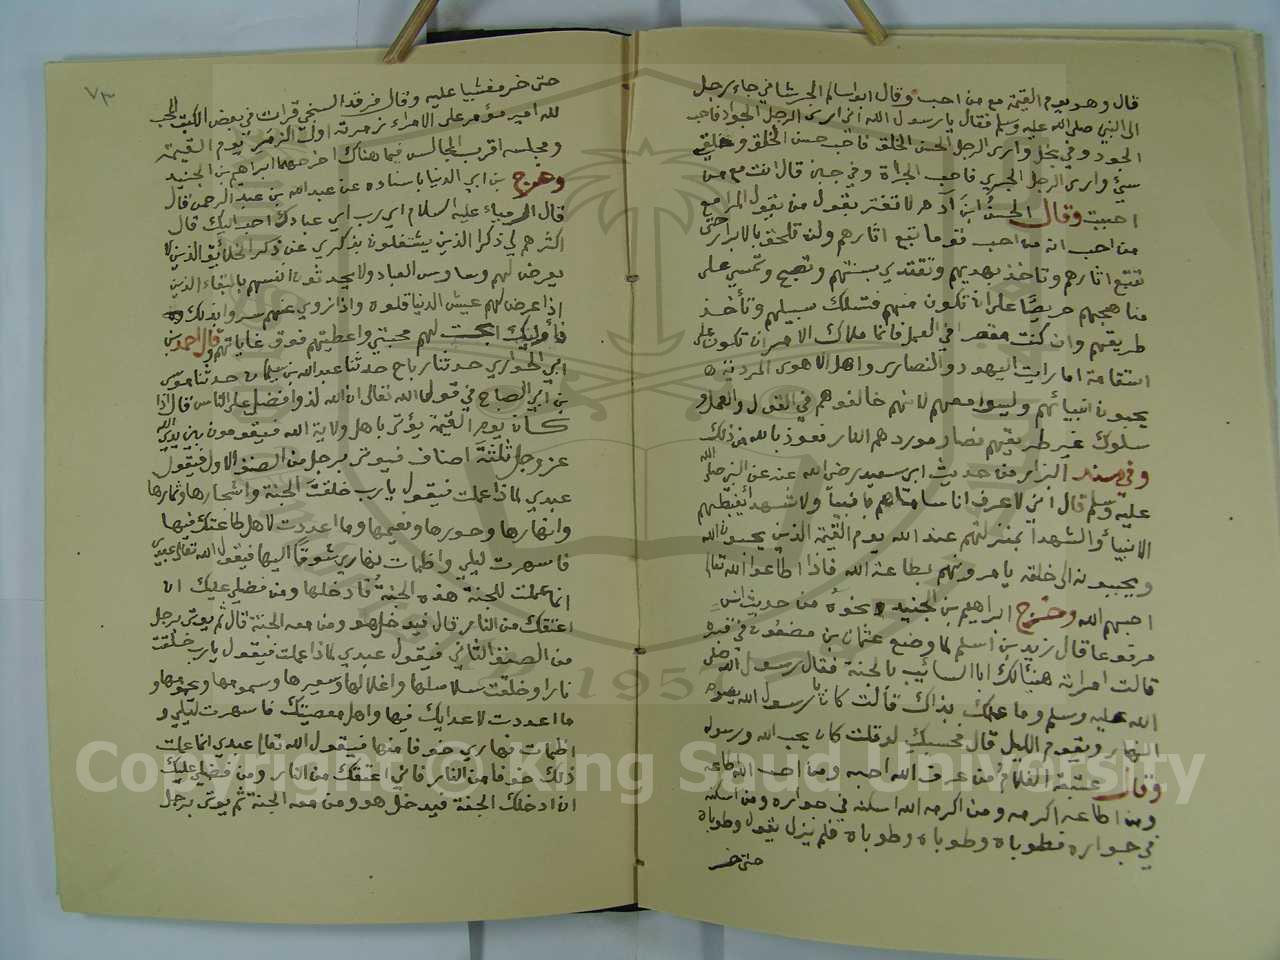 قال وهو يوم القيمة مع من احب وقال ابو سالم الجيشاني جاء رجل
الى النبي صلى الله عليه وسلم فقال يا رسول الله اني ارى الرجل الجواد فاحب
الجود وفي بخل وارى الرجل الحسن الخلق فاحب حسن الخلق وفي خلقي
سيئ وارى الرجل الجري فاحب الجراة وفي جبن قال انت مع من
احببت وقال الحسن ابن آدم لا تغتر بقول من يقول المرا مع
من احب انه من احب قوما تبع اثارهم ولن تلحق بالابرار حتى
تتبع اثارهم وتاخذ بهديهم وتقتدي بسنتهم وتصبح وتمسي على
مناهجهم حريصا على ان تكون منهم فتسلك سبيلهم وتأخذ
طريقهم وان كنت مقصرا في العمل فانما ملاك الامر ان تكون على
استقامة اما رايت اليهود والنصارى واهل الاهوى المردية
يحبون انبيائهم وليسوا معهم لانهم خالفوهم في القول والعمل و
سلوك غير طريقهم فصار موردهم النار نعوذ بالله من ذلك
وفي مسند البزار من حديث ابي سعيد رضي الله عنه عن النبي صلى الله
عليه وسلم قال اني لاعرف اناسا ماهم بانبيا ولا شهدا يغبطهم
الانبياء والشهدا بمنزلتهم عند الله يوم القيمة الذين يحبون الله
ويحببونه الى خلقه يامرونهم بطاعة الله فاذا اطاعوا الله تعالى
احبهم الله وخرج ابراهيم بن الجنيد نحوه من حديث انس
مرفوعا قال زيد بن اسلم لما وضع عثمان بن مضعون في قبره
قالت امراته هنيئا لك ابا السائب بالجنة فقال رسول الله صلى
الله عليه وسلم وما علمك بذاك قالت كان يا رسول الله يصوم
النهار ويقوم الليل قال فحسبك لو قلت كان يحب الله ورسوله
وقال عتبة الغلام من عرف الله احبه ومن احب الله اطاعه
ومن اطاعه اكرمه ومن اكرمه الله اسكنه في جواره ومن اسكنه
في جواره فطوباه وطوباه وطوباه فلم يزل يقول وطوباه
حتى خر
٧٣
حتى خر مغشيا عليه وقال فرقد السبخي قرات في بعض الكتب المحب
لله امير مؤمر على الامراء زمرته اول الزمر يوم القيمة
ومجلسه اقرب المجالس فيما هناك اخرجهما ابراهيم بن الجنيد
وخرج بن ابي الدنيا باسناده عن عبد الله بن عبد الرحمن قال
قال عليه السلام اي رب اي عبادك احب اليك قال
اكثرهم لي ذكرا الذين يشتغلون بذكري عن ذكر الخلائق الذين لا
يعرض لهم وساوس العباد ولا يحدثون انفسهم بالبقاء الذين
اذا عرض لهم عيش الدنيا قلوه واذا زوي عنهم سروا بذلك
فأوليك لهم محبتي واعطيتهم فوق غاياتهم وقال احمد بن
ابي الحواري حدثنا رباح حدثنا عبد الله بن سليمان حدثنا موسى
بن ابي الصباح في قول الله تعالى ان الله لذو افضل على الناس قال اذا
كان يوم القيمة يؤتى باهل ولاية الله فيقومون بين يدي الله
عز وجل ثلثة اصناف فيوتى برجل من الصنف الاول فيقول
عبدي لماذا عملت فيقول يارب خلقت الجنة واشجارها وثمارها
وانهارها وحورها ونعيمها وما اعددت لاهل طاعتك فيها
فاسهرت ليلي واظمات نهاري شوقا اليها فيقول الله تعالى عبدي
انما عملت للجنة هذه الجنة فادخلها ومن فضلي عليك ان
اعتقك من النار قال فيدخل هو ومن معه الجنة قال ثم يوتى برجل
من الصنف الثاني فيقول عبدي لماذا عملت فيقول يارب خلقت
نارا وخلقت سلاسلها واغلالها وسعيرها وسمومها ويحمومها و
ما اعددت لاعدايك فيها واهل معصيتك فاسهرت ليلي و
اظمات نهاري خوفا منها فيقول الله تعالى عبدي انما عملت
ذلك خوفا من النار فاني اعتقك من النار ومن فضلي عليك
ان ادخلك الجنة فيدخل هو ومن معه الجنة ثم يوتى برجل
1957
Copyright © King Saud University